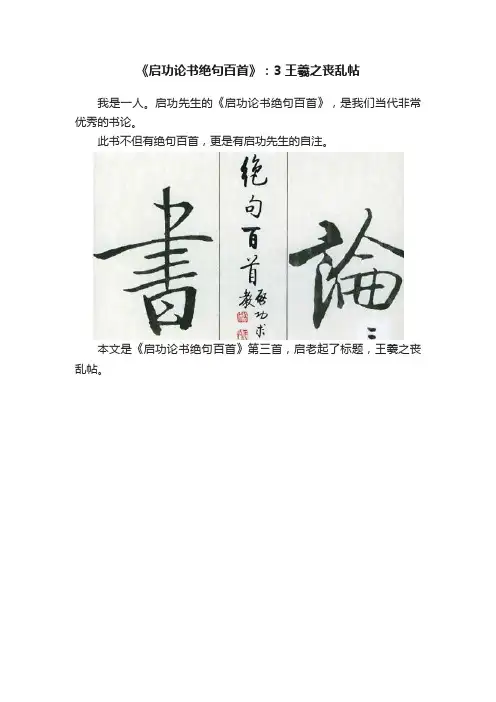 《启功论书绝句百首》：3 王羲之丧乱帖
我是一人。启功先生的《启功论书绝句百首》，是我们当代非常
优秀的书论。
此书不但有绝句百首，更是有启功先生的自注。
論
二
絶句百首
啓功求
教
書
本文是《启功论书绝句百首》第三首，启老起了标题，王羲之丧
乱帖。